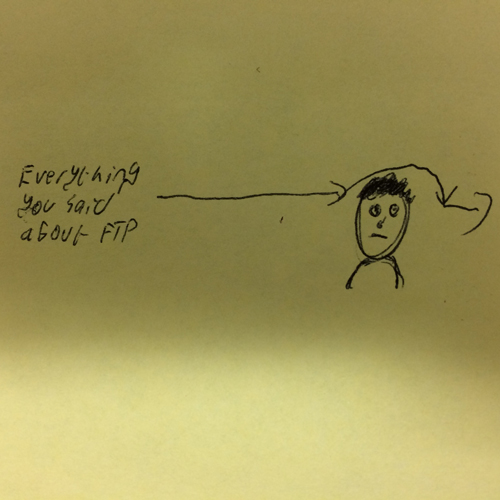 Everything
you said
about FTP